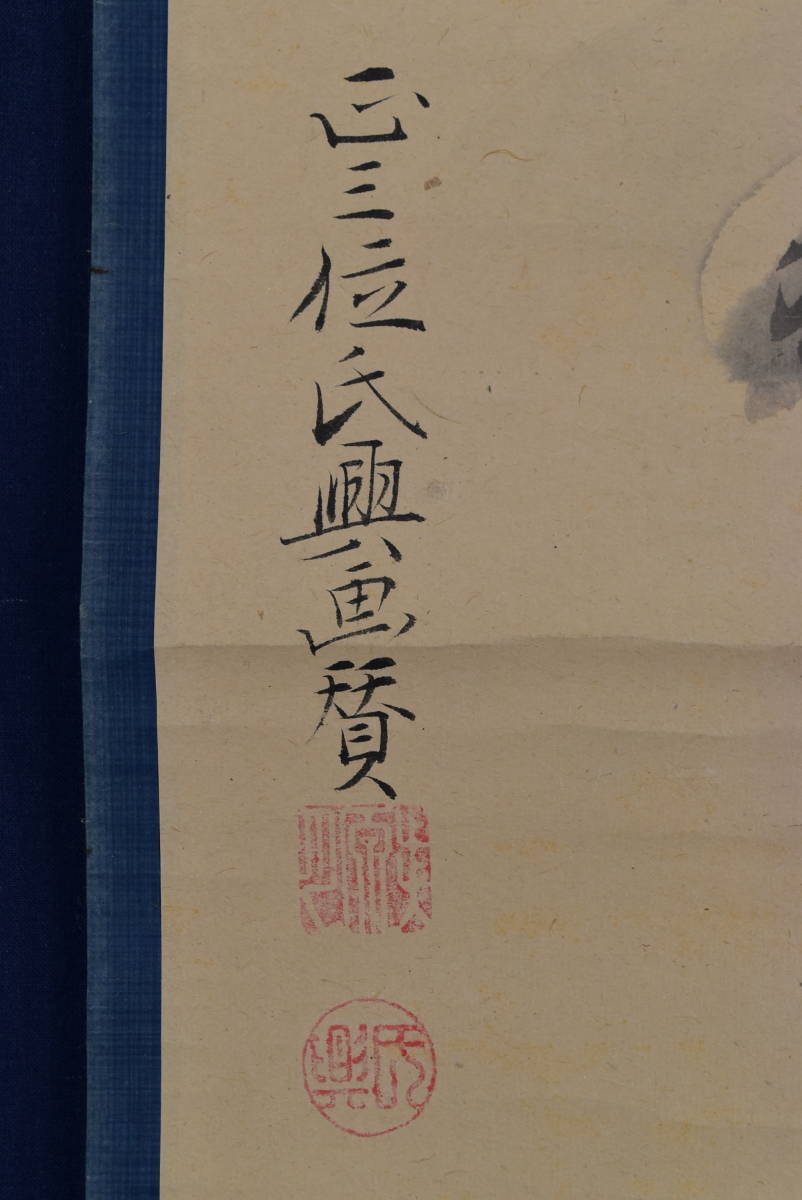 正三位氏興画賛
氏興